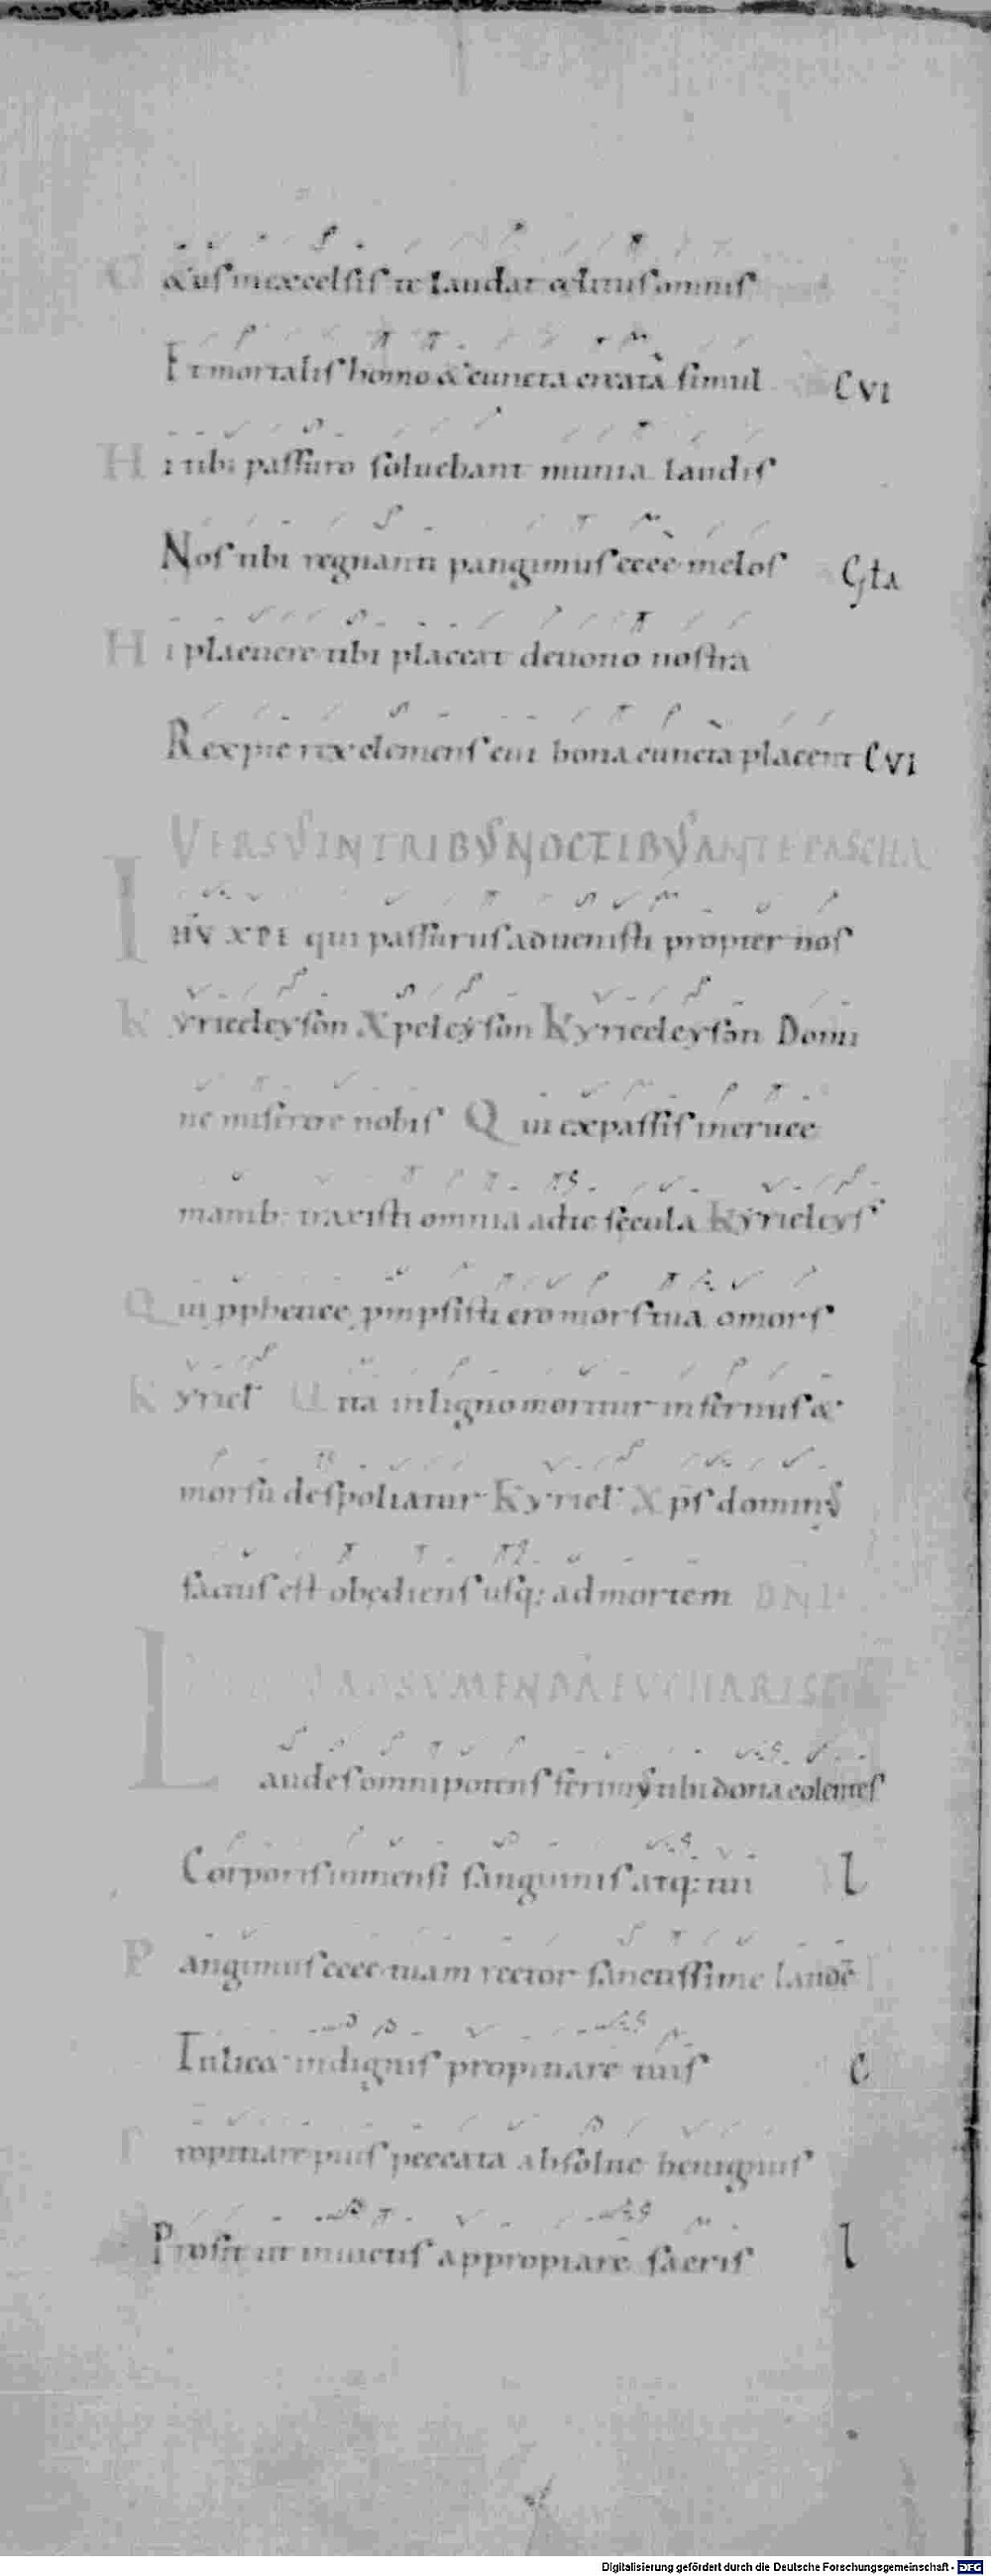 C &etus in excelsis te laudat cęlitus omnis
Et mortalis homo & cuncta creata simul Cui
H i tibi passuro soluebant munia laudis
Nos tibi regnanti pangimus ecce melos Gľa
H i placuere tibi placeat deuotio nostra
Rex pie rex clemens cui bona cuncta placent Cui
VERSUS IN TRIBUS NOCTIBUS ANTE PASCHA
I HV XPE qui passurus aduenisti propter nos
K yrieeleyson Xpeleyson Kyrieeleyson Domi
ne miserere nobis Q ui expassis in cruce
manib: traxisti omnia ad te secula Kyrieleys
Q ui pphetice pmpsisti ero mors tua o mors
K yriel Uita in ligno moritur infernus &
morsu despoliatur Kyriel Xps dominus
factus est obediens usq: ad mortem
SUMENDAM EUCHARIST
L audes omnipotens ferimus tibi dona colentes
Corporis inmensi sanguinis atq: tui L
P angimus ecce tuam rector sanctissime laudē
Tu licet indignis propinare tuis C
P ropitiare pius peccata absolue benignus
Prosit ut inuictis appropiare sacris L
Digitalisierung gefördert durch die Deutsche Forschungsgemeinschaft - DFG